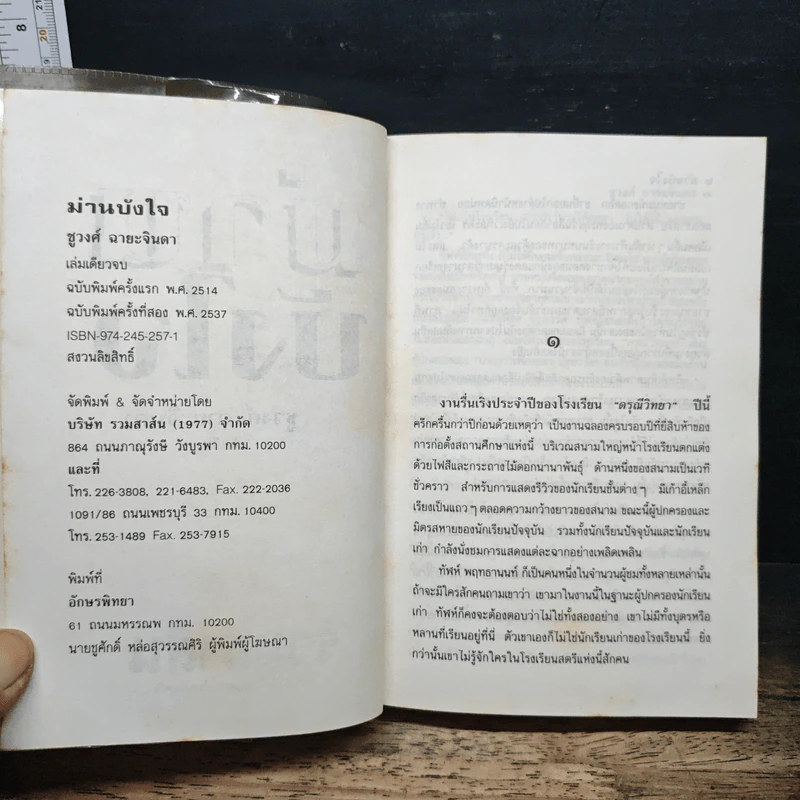 ม่านบังใจ
ชูวงศ์ ฉายะจินดา
เล่มเดียวจบ
ฉบับพิมพ์ครั้งแรก พ.ศ. 2514
ฉบับพิมพ์ครั้งที่สอง พ.ศ. 2537
ISBN-974-245-257-1
สงวนลิขสิทธิ์
จัดพิมพ์ & จัดจำหน่ายโดย
บริษัท รวมสาส์น (1977) จำกัด
864 ถนนภาณุรังษี วังบูรพา กทม. 10200
และที่
โทร. 226-3808, 221-6483, Fax. 222-2036
1091/86 ถนนเพชรบุรี 33 กทม. 10400
โทร. 253-1489 Fax. 253-7915
พิมพ์ที่
อักษรพิทยา
61 ถนนมหรรณพ กทม. 10200
นายชูศักดิ์ หล่อสุวรรณศิริ ผู้พิมพ์ผู้โฆษณา
๑
งานรื่นเริงประจำปีของโรงเรียน "ดรุณีวิทยา" ปีนี้
ครึกครื้นกว่าปีก่อนด้วยเหตุว่า เป็นงานฉลองครบรอบปีที่ยี่สิบห้าของ
การก่อตั้งสถานศึกษาแห่งนี้ บริเวณสนามใหญ่หน้าโรงเรียนตกแต่ง
ด้วยไฟสีและกระถางไม้ดอกนานาพันธุ์ ด้านหนึ่งของสนามเป็นเวที
ชั่วคราว สำหรับการแสดงรีวิวของนักเรียนชั้นต่าง ๆ มีเก้าอี้เหล็ก
เรียงเป็นแถว ๆ ตลอดความกว้างยาวของสนาม ขณะนี้ผู้ปกครองและ
มิตรสหายของนักเรียนปัจจุบัน รวมทั้งนักเรียนปัจจุบันและนักเรียน
เก่า กำลังนั่งชมการแสดงแต่ละฉากอย่างเพลิดเพลิน
ทัฬห์ พฤทธานนท์ ก็เป็นคนหนึ่งในจำนวนผู้ชมทั้งหลายเหล่านั้น
ถ้าจะมีใครสักคนถามเขาว่า เขามาในงานนี้ในฐานะผู้ปกครองนักเรียน
เก่า ทัฬห์ก็คงจะต้องตอบว่าไม่ใช่ทั้งสองอย่าง เขาไม่มีทั้งบุตรหรือ
หลานที่เรียนอยู่ที่นี่ ตัวเขาเองก็ไม่ใช่นักเรียนเก่าของโรงเรียนนี้ ยิ่ง
กว่านั้นเขาไม่รู้จักใครในโรงเรียนสตรีแห่งนี้สักคน